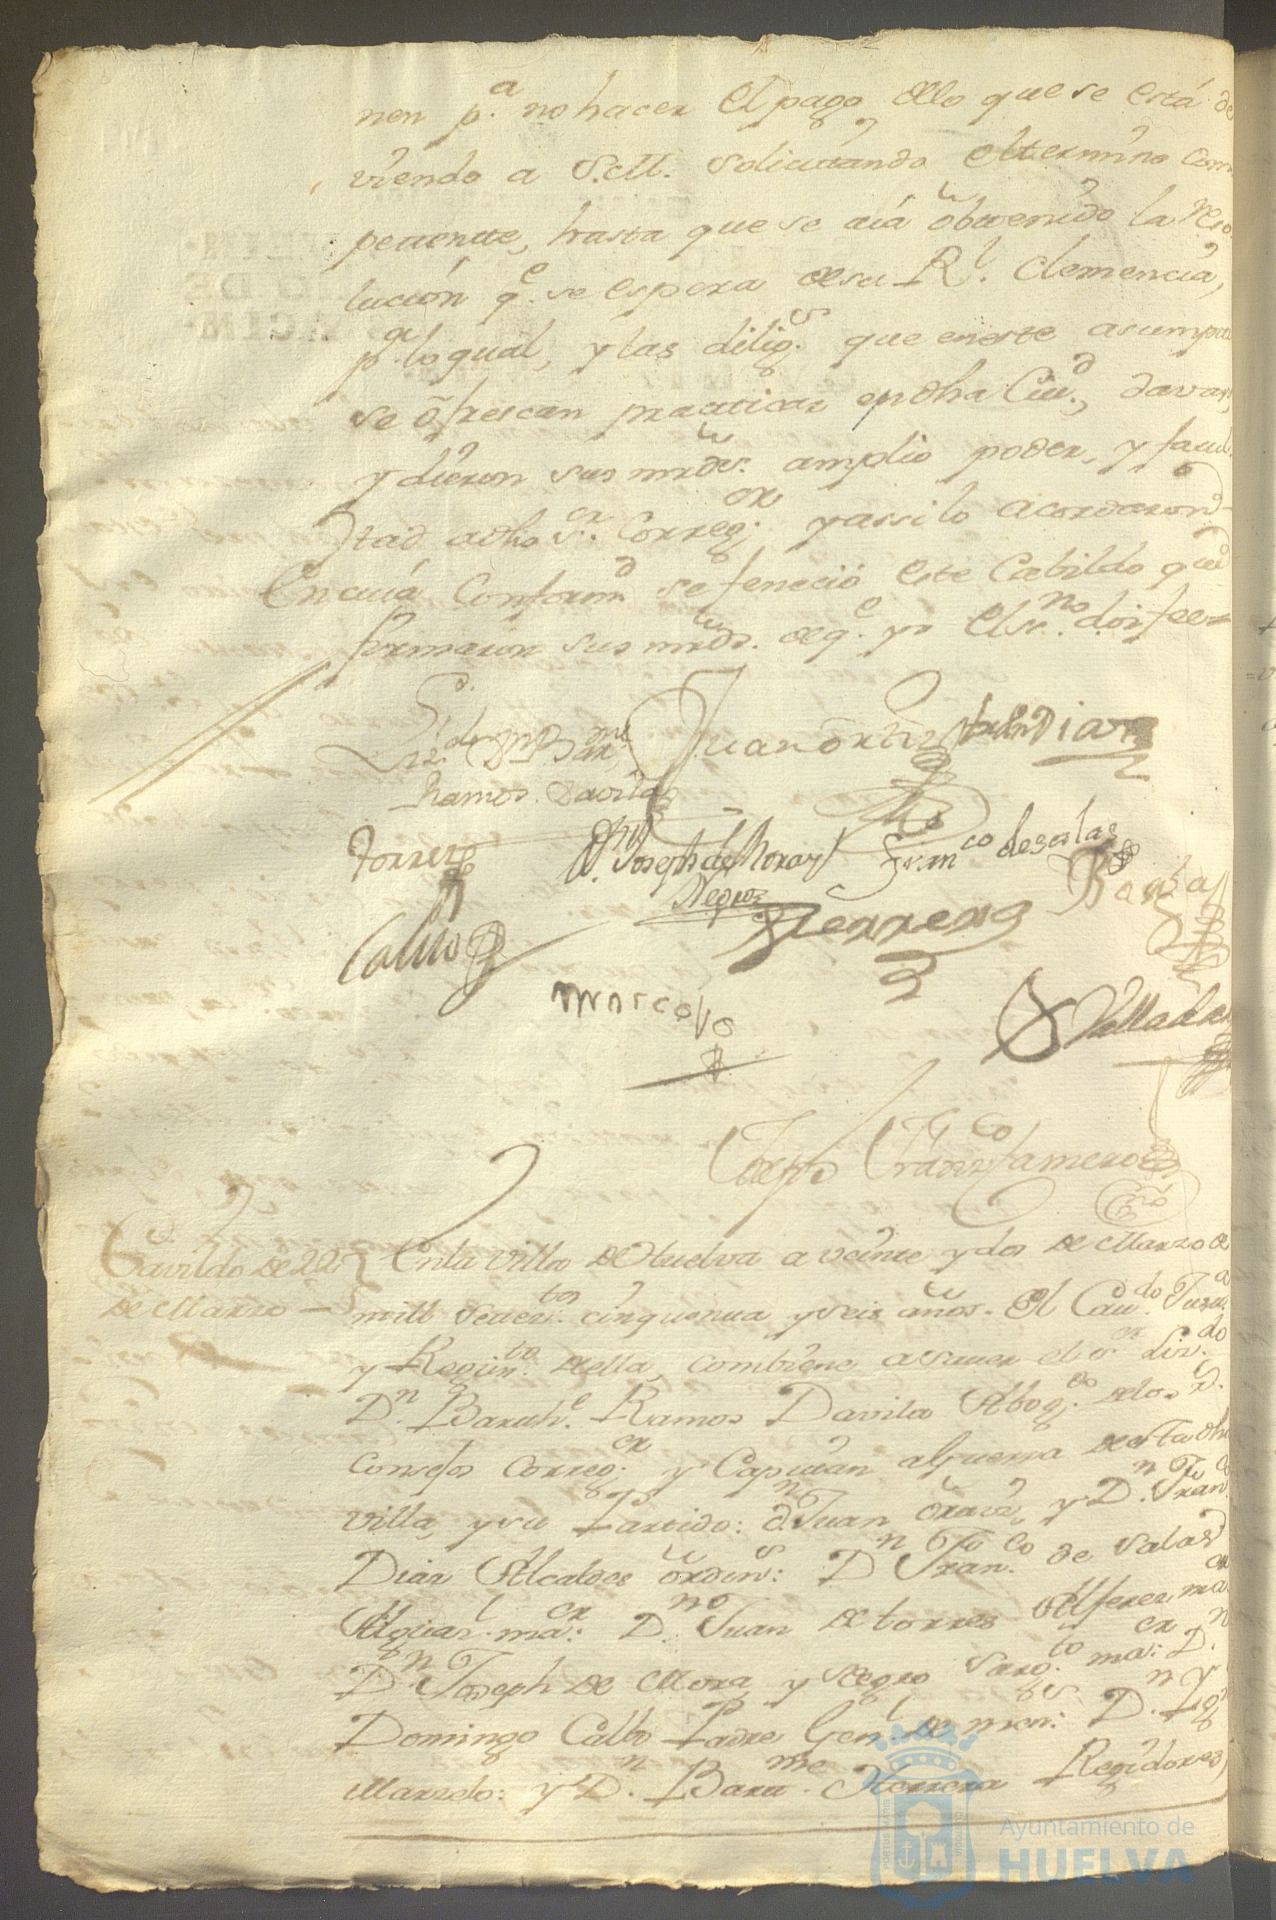 nen p.ª no hacer el pago dello que se está de
viendo a S.M. solicitando el termino com
petentte, hasta que se aia obttenido la reso
lucion q.e se espera de su R.l Clemencia,
p.ª lo qual, y las dilig.s que en este asumpto
se ofrescan practicar en dha Ciu.d, davan,
y dieron sus mrds. amplio poder, y facul
tad a dho s.r Correg.or y assi lo acordaron
En cuia Conform.d se feneció este Cabildo que
firmaron sus mrds. de q.e yo el ss.no doi fee=
Liz.do Dn Bar.me
Ramos Davila
Juan ortiz
fran Diaz
Torres
D.n Joseph de Mora y
Negro
Fran.co de salas
Borba
Calvo
Herrera
Marcelo
Valladares
Joseph Fran.co Zamero
Cavildo de 22
de Marzo
En la villa de Huelva a veinte y dos de Marzo de
mill setez.tos cinquenta y seis años. El Cav.do Just.ª
y Regim.to della, combiene a saver el s.r Liz.do
D.n Barth.e Ramos Davila Abog.do de los R.s
Consejos Correg.or y Capitan a Guerra de esta dha
villa, y su Partido: d.n Juan Ortiz, y D.n Fran.co
Diaz Alcaldes ordin.s: D.n Fran.co de Salas
Alguaz.l ma.or: D.n Juan de torres Alferez ma.or
D.n Joseph de Mora y Negro Sarg.to ma.or: D.n
Domingo Calbo Padre Gen.l de men.s: D.n
Marzelo: y D.n Barm.me Herrera Regidores,
Ayuntamiento de
HUELVA